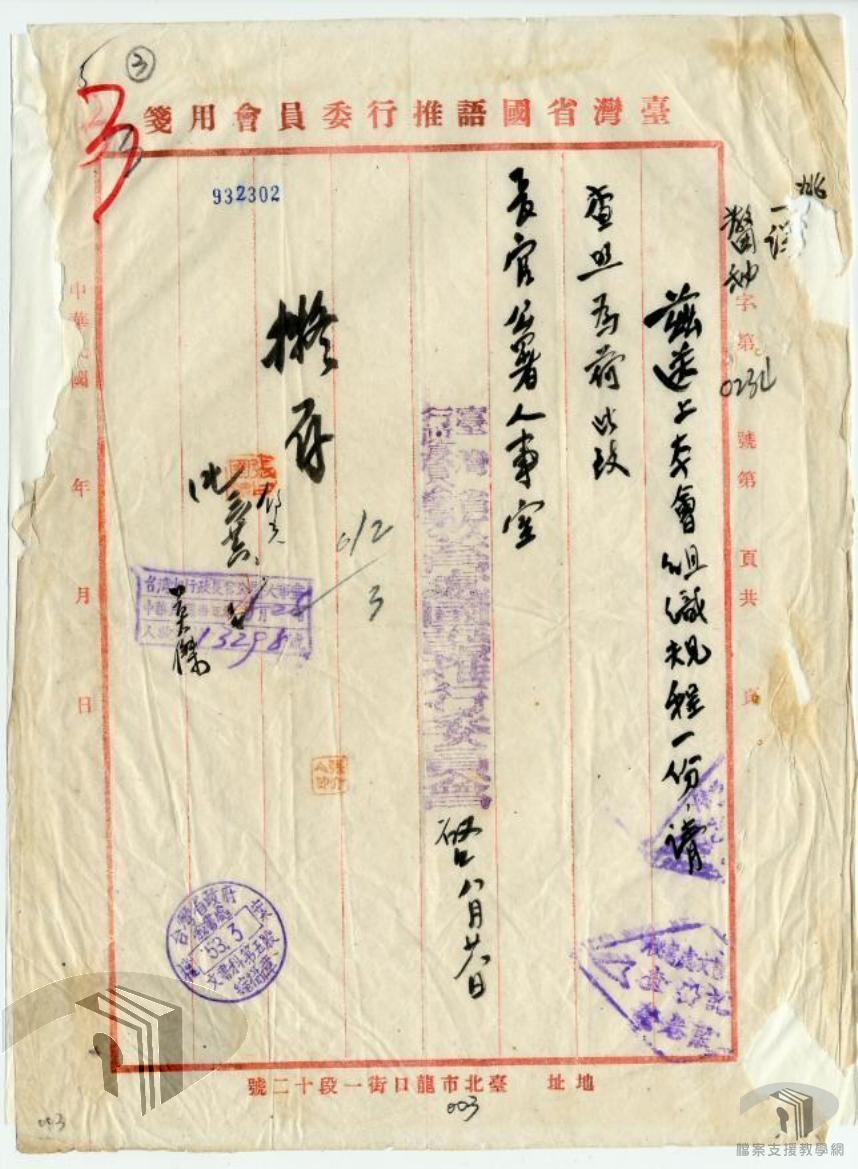 臺灣省國語推行委員會用箋
字第 號第 頁共 頁
023
茲送上本會組織規程一份,請
查照為荷此致
長官公署人事室
臺灣省行政長官公署國語推行委員會
啓八月廿八日
擬存
6/2
3
932302
13298
53.3
文書科第五股
中華民國 年 月 日
地址 臺北市龍口街一段十二號
003
003
3
檔案支援教學網